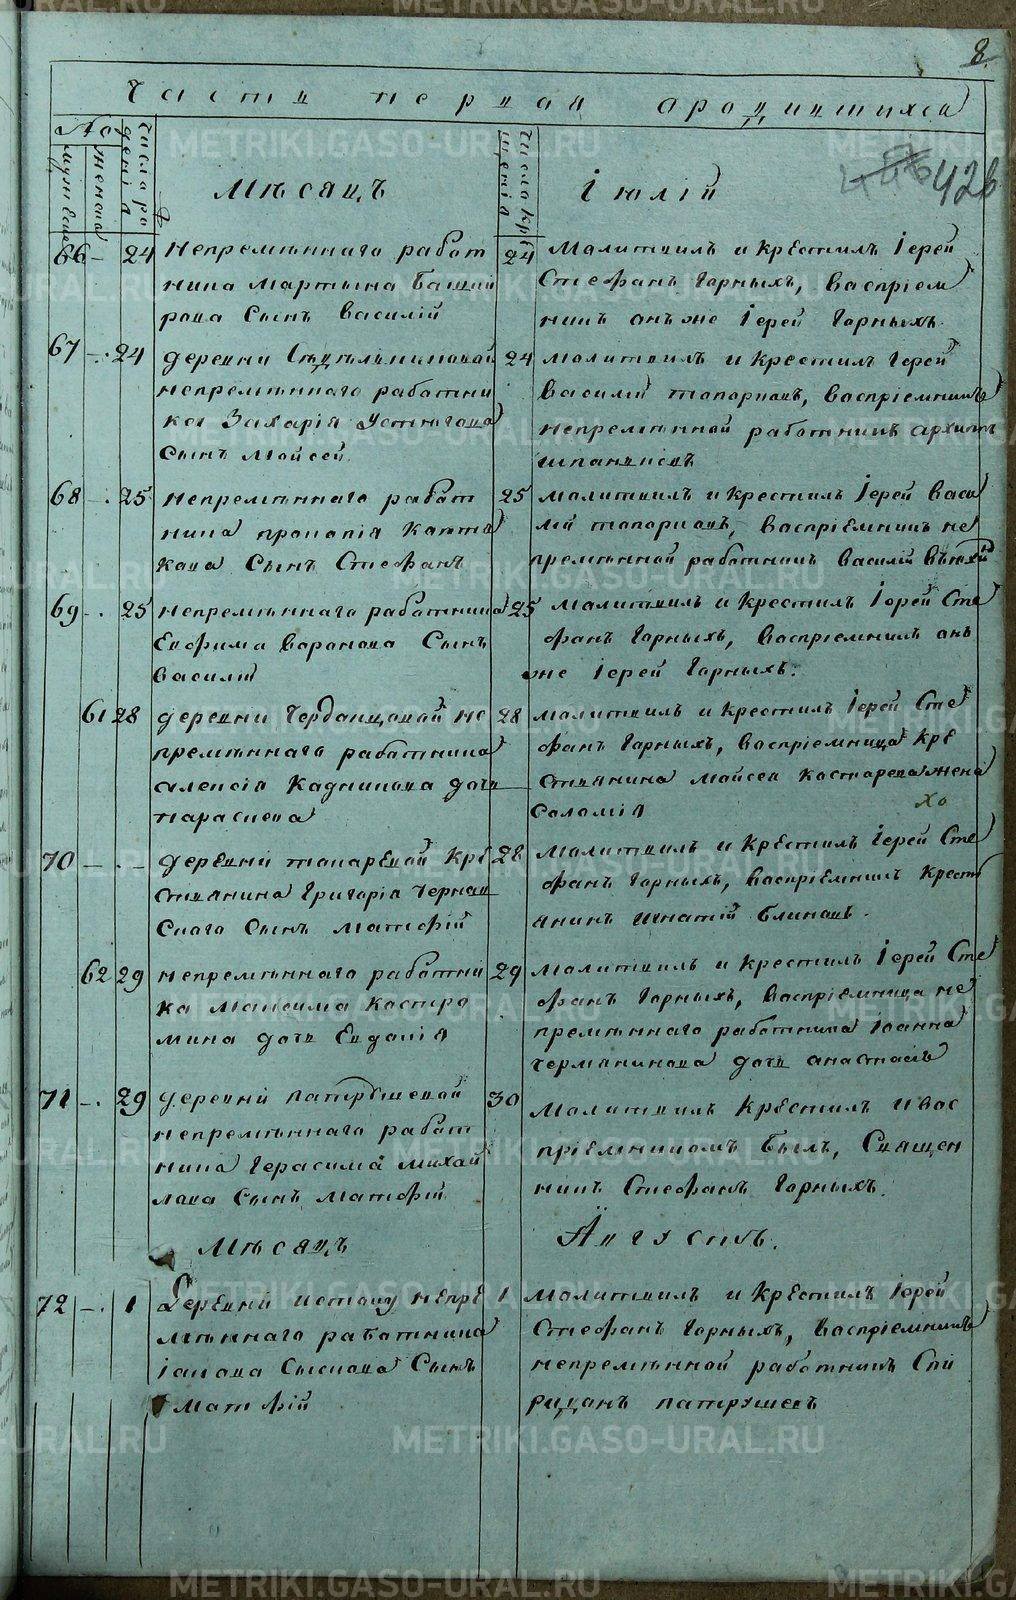 8.
Часть первая ородившихся
№
мужеска
женска
числа ро
детія
числа кре
щенія
Мѣсяцъ
Іюлій
426
66 - 24 Непремѣннаго работ
ника Мартына
рова Сынъ Василій
24 Молитвилъ и Крестилъ Іерей
Стефанъ Горныхъ, Воспріем
никъ онъ же Іерей Горныхъ.
67 - 24 деревни
непремѣннаго работни
ка Захарія Устюгова
Сынъ Мойсей
24 молитвилъ и крестилъ Іерей
Василій топорковъ, Воспріемникъ
непремѣнной работникъ архипъ
68 - 25 непремѣннаго работ
ника прокопія
кова Сынъ Стефанъ
25 молитвилъ и крестилъ Іерей Васи
лій топорковъ, воспріемникъ не
премѣнной работникъ василій
69 - 25 непремѣннаго работника
Ефима Воронова Сынъ
василій
25 молитвилъ и Крестилъ Іерей Сте
фанъ Горныхъ, Воспріемникъ онъ
же Іерей Горныхъ.
61 28 деревни Черданцовой не
премѣннаго работника
алексія Кадникова дочь
параскева
28 молитвилъ и крестилъ Іерей Сте
фанъ Горныхъ, воспріемница Кре
стьянина Мойсея Костарева жена
Соломія
70 - - деревни токаревой кре
стьянина Григорія Чернав
скаго Сынъ Матфій
28 молитвилъ и Крестилъ Іерей Сте
фанъ Горныхъ, воспріемникъ Кресть
янинъ игнатій блиновъ.
62 29 непремѣннаго работни
ка Максима Костро
мина дочь Евдокія
29 молитвилъ и крестилъ Іерей Сте
фанъ Горныхъ, Воспріемница не
премѣннаго работника Іоанна
Чермянинова дочь
71 - 29 деревни патрушевой
непремѣннаго работ
ника Герасима Михай
лова Сынъ Матфій
30 Молитвилъ Крестилъ и вос
пріемникомъ былъ, Священ
никъ Стефанъ Горныхъ.
Мѣсяцъ
Августъ.
72 - 1 Деревни истоку непре
мѣннаго работника
Іакова Сыскова Сынъ
Матфій
1 Молитвилъ и Крестилъ Іерей
Стефанъ Горныхъ, Воспріемникъ
непремѣнной работникъ Спи
ридонъ патрушевъ
METRIKI.GASO-URAL.RU